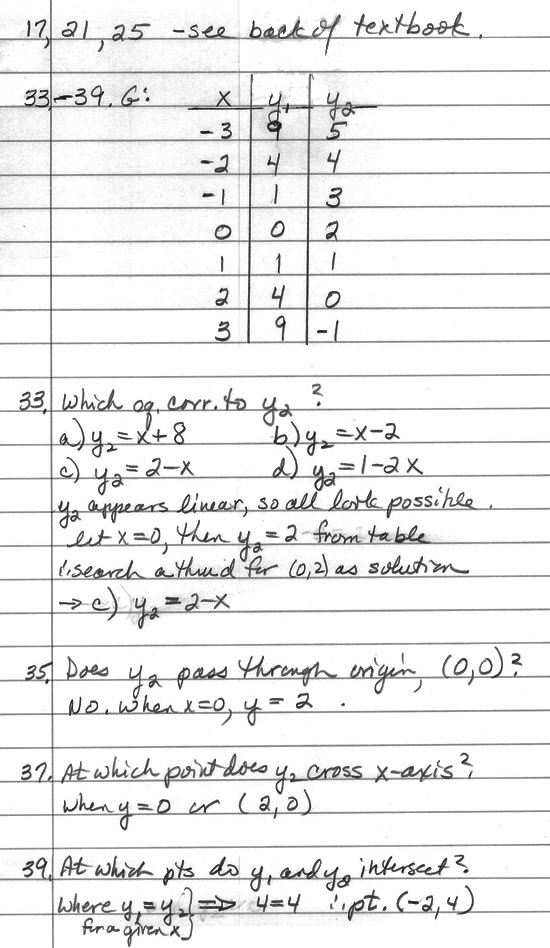 17, 21, 25 - see back of textbook.
33-39. G: x y₁ y₂
-3 9 5
-2 4 4
-1 1 3
0 0 2
1 1 1
2 4 0
3 9 -1
33. Which eq. corr. to y₂ ?
a) y₂ = x + 8 b) y₂ = x - 2
c) y₂ = 2 - x d) y₂ = 1 - 2x
y₂ appears linear, so all look possible.
let x = 0, then y₂ = 2 from table
∴ search a thru d for (0,2) as solution
→ c) y₂ = 2 - x
35. Does y₂ pass through origin, (0,0)?
No. When x = 0, y = 2 .
37. At which point does y₂ cross x-axis?
When y = 0 or (2,0)
39. At which pts do y₁ and y₂ intersect?
Where y₁ = y₂ } ⇒ 4 = 4 ∴ pt. (-2,4)
for a given x